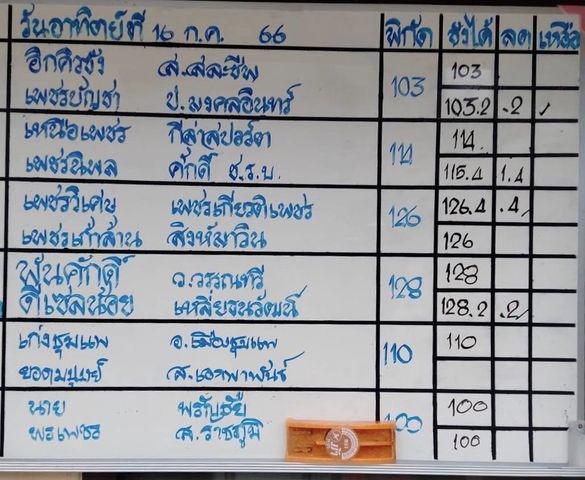 วันอาทิตย์ที่ 16 ก.ค. 66 พิกัด ชั่งได้ ลด เหลือ
อีกคิวชัง ส.สละชีพ 103 103
เพชรบัญชา ป.มงคลอินทร์ 103.2 .2 /
เหนือเพชร กีล่าสปอร์ต 114 114
เพชรนิพล ศักดิ์ ช.ร.บ. 115.4 1.4
เพชรวิเศษ เพชรเกียรติเพชร 126 126.4 .4 /
เพชรเก้าล้าน สิงห์มาวิน 126
พันศักดิ์ ว.วรรณทวี 128 128
ดีเซลน้อย เหลี่ยธนวัฒน์ 128.2 .2 /
เก่งชุมแพ อ.เมืองชุมแพ 110 110
ส.เอกพาพันธ์
นาย 100 100
พรเพชร ส.ราชภูมิ 100